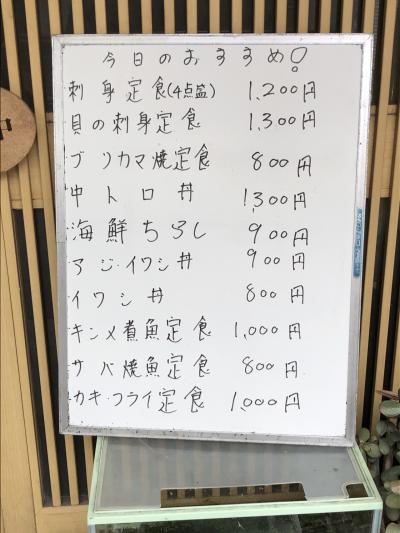 今日のおすすめ!
刺身定食(4点盛) 1,200円
貝の刺身定食 1,300円
ブリカマ焼定食 800円
中トロ丼 1,300円
海鮮ちらし 900円
アジ・イワシ丼 900円
イワシ丼 800円
キンメ煮魚定食 1,000円
サバ焼魚定食 800円
カキ・フライ定食 1,000円